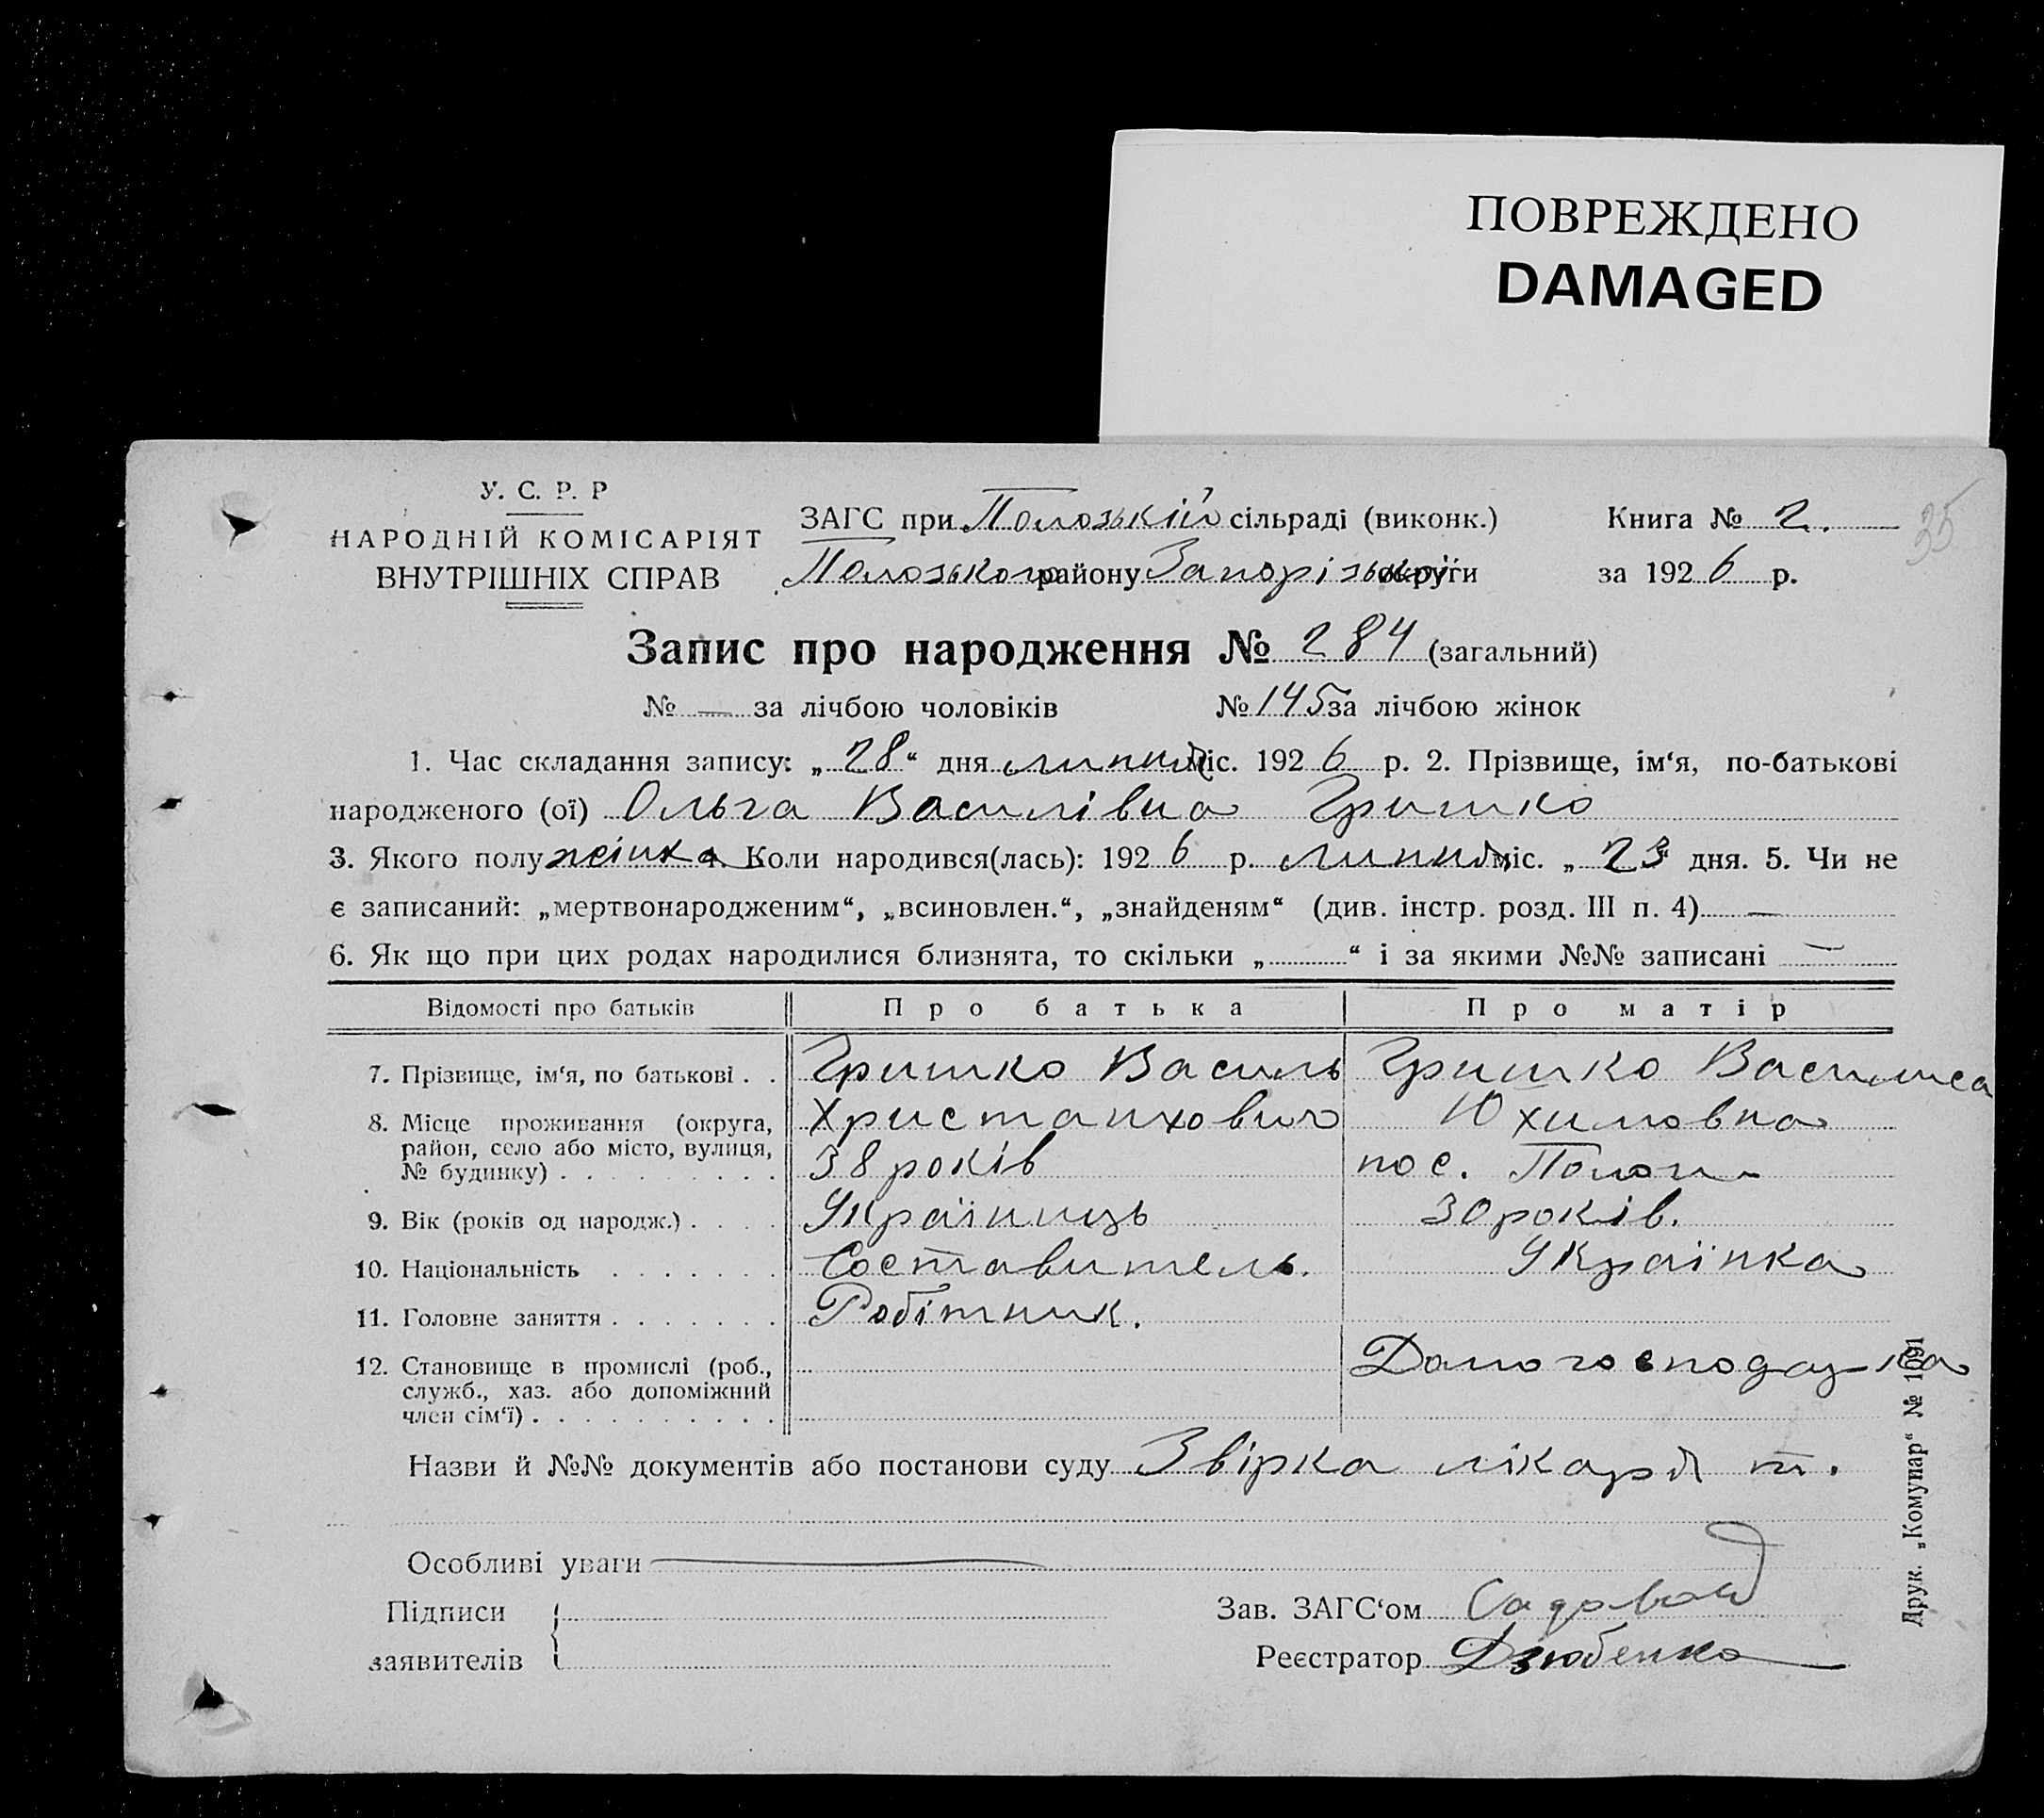 ПОВРЕЖДЕНО
DAMAGED
35
У. С. Р. Р
НАРОДНІЙ КОМІСАРІЯТ
ВНУТРІШНІХ СПРАВ
ЗАГС при Пологській сільраді (виконк.)
Пологського району Запорізької округи
Книга № 2.
за 1926 р.
Запис про народження № 284 (загальний)
№ — за лічбою чоловіків № 145 за лічбою жінок
1. Час складання запису: „28“ дня липня міс. 1926 р. 2. Прізвище, ім‘я, по-батькові
народженого (ої) Ольга Василівна Гришко
3. Якого полу жінка 4. Коли народився(лась): 1926 р. липня міс. „23“ дня. 5. Чи не
є записаний: „мертвонародженим“, „всиновлен.“, „знайденям“ (див. інстр. розд. III п. 4) —
6. Як що при цих родах народилися близнята, то скільки „ “ і за якими №№ записані —
Відомості про батьків Про батька Про матір
7. Прізвище, ім‘я, по батькові . . Гришко Василь Гришко Василиса
8. Місце проживання (округа, Юхимовна
район, село або місто, вулиця, 38 років пос. Пологи
№ будинку)
9. Вік (років од народж.) Українець 30 років.
10. Національність Составитель. Українка
11. Головне заняття Робітник.
12. Становище в промислі (роб., Домогосподарка
служб., хаз. або допоміжний
член сім‘ї)
Назви й №№ документів або постанови суду Звірка лікаря
Особливі уваги —
Підписи
заявителів
Зав. ЗАГС‘ом Садовой
Реєстратор Дзюбенко
Друк. „Комунар“ № 1691